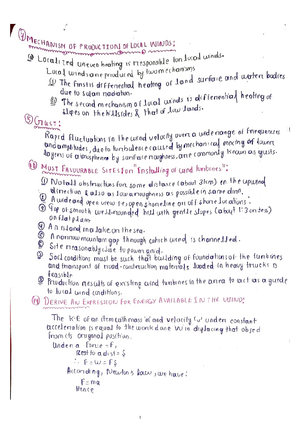 MECHANISM OF PRODUCTION OF LOCAL WINDS:
Localized uneven heating is responsible for local winds.
Local winds are produced by two mechanisms
The first is differential heating of land surface and water bodies
due to solar radiation.
The second mechanism of local winds is differential heating of
slopes on the hillsides & that of low lands.
GUST:
Rapid fluctuations in the wind velocity over a wide range of frequencies
and amplitudes, due to turbulence caused by mechanical mixing of lower
layers of atmosphere by surface roughness, are commonly known as gusts.
MOST FAVOURABLE SITES FOR "Installing of wind turbines":
No tall obstructions for some distance (about 3km) in the upwind
direction & also as low a roughness as possible in same
A wide and open view is open shoreline or off shore locations.
Top of smooth well-rounded hill with gentle slopes (about 1:3 or less)
on flat plain
An island in a lake or the sea.
A narrow mountain gap through which wind is channelled.
Site reasonably close to power grid.
Soil conditions must be such that building of foundations of the turbines
and transport of road-construction materials loaded in heavy trucks is
feasible.
Production results of existing wind turbines in the area to act as a guide
to local wind conditions.
DERIVE AN EXPRESSION FOR ENERGY AVAILABLE IN THE WIND:
The K.E of an item with mass 'm' and velocity 'u' under constant
acceleration is equal to the work done W in displacing that object
from its original position.
Under a force - F,
rest to a dist = s
∴ E = W = F s
According, Newton's law, we have:
F = ma
Hence